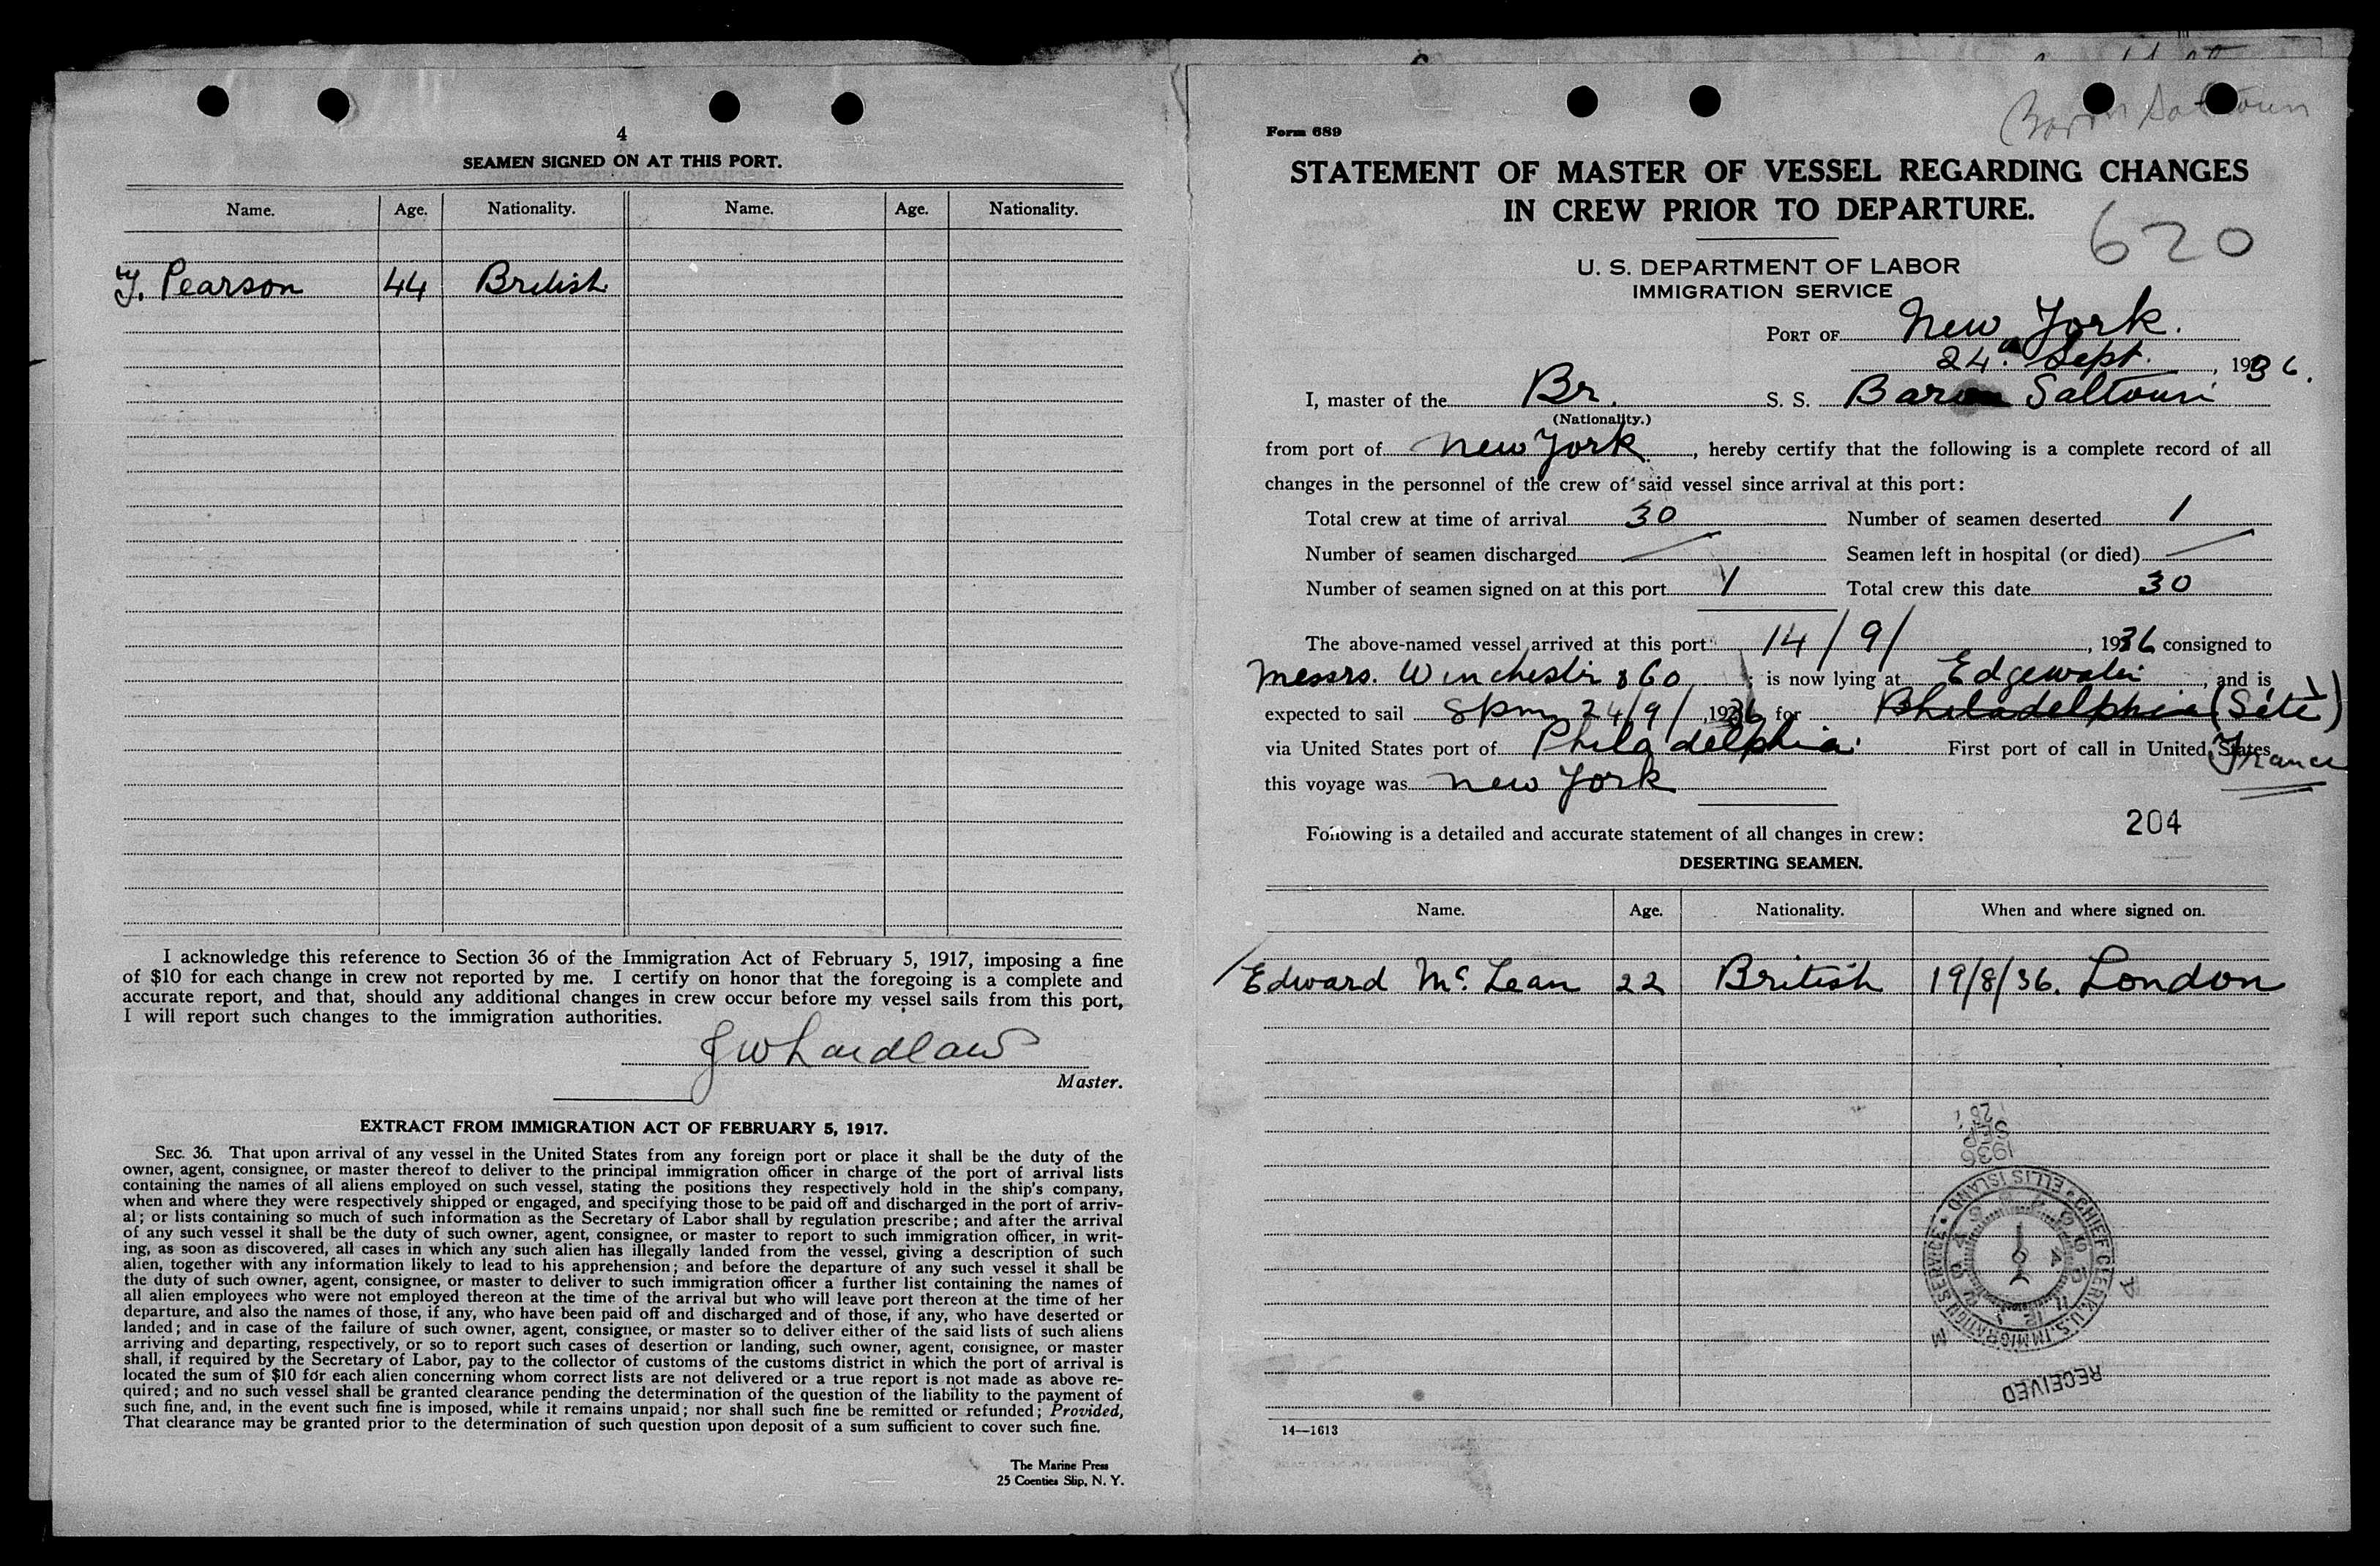 4
SEAMEN SIGNED ON AT THIS PORT.
Name. Age. Nationality. Name. Age. Nationality.
Y. Pearson 44 British
I acknowledge this reference to Section 36 of the Immigration Act of February 5, 1917, imposing a fine
of $10 for each change in crew not reported by me. I certify on honor that the foregoing is a complete and
accurate report, and that, should any additional changes in crew occur before my vessel sails from this port,
I will report such changes to the immigration authorities.
J W Laidlaw
Master.
EXTRACT FROM IMMIGRATION ACT OF FEBRUARY 5, 1917.
SEC. 36. That upon arrival of any vessel in the United States from any foreign port or place it shall be the duty of the
owner, agent, consignee, or master thereof to deliver to the principal immigration officer in charge of the port of arrival lists
containing the names of all aliens employed on such vessel, stating the positions they respectively hold in the ship's company,
when and where they were respectively shipped or engaged, and specifying those to be paid off and discharged in the port of arriv-
al; or lists containing so much of such information as the Secretary of Labor shall by regulation prescribe; and after the arrival
of any such vessel it shall be the duty of such owner, agent, consignee, or master to report to such immigration officer, in writ-
ing, as soon as discovered, all cases in which any such alien has illegally landed from the vessel, giving a description of such
alien, together with any information likely to lead to his apprehension; and before the departure of any such vessel it shall be
the duty of such owner, agent, consignee, or master to deliver to such immigration officer a further list containing the names of
all alien employees who were not employed thereon at the time of the arrival but who will leave port thereon at the time of her
departure, and also the names of those, if any, who have been paid off and discharged and of those, if any, who have deserted or
landed; and in case of the failure of such owner, agent, consignee, or master so to deliver either of the said lists of such aliens
arriving and departing, respectively, or so to report such cases of desertion or landing, such owner, agent, consignee, or master
shall, if required by the Secretary of Labor, pay to the collector of customs of the customs district in which the port of arrival is
located the sum of $10 for each alien concerning whom correct lists are not delivered or a true report is not made as above re-
quired; and no such vessel shall be granted clearance pending the determination of the question of the liability to the payment of
such fine, and, in the event such fine is imposed, while it remains unpaid; nor shall such fine be remitted or refunded; Provided,
That clearance may be granted prior to the determination of such question upon deposit of a sum sufficient to cover such fine.
The Marine Press
25 Coenties Slip, N. Y.
Baron Saltoun
Form 689
STATEMENT OF MASTER OF VESSEL REGARDING CHANGES
IN CREW PRIOR TO DEPARTURE.
620
U. S. DEPARTMENT OF LABOR
IMMIGRATION SERVICE
PORT OF New York.
24. Sept. , 1936.
I, master of the Br. S. S. Baron Saltoun
(Nationality.)
from port of New York , hereby certify that the following is a complete record of all
changes in the personnel of the crew of said vessel since arrival at this port:
Total crew at time of arrival 30 Number of seamen deserted 1
Number of seamen discharged / Seamen left in hospital (or died) /
Number of seamen signed on at this port 1 Total crew this date 30
The above-named vessel arrived at this port 14/9/ , 1936 consigned to
Messrs. Winchester & Co ; is now lying at Edgewater , and is
expected to sail 8pm 24/9/ , 1936 for Philadelphia (Séte)
via United States port of Philadelphia. First port of call in United States
France
this voyage was New York
204
Following is a detailed and accurate statement of all changes in crew:
DESERTING SEAMEN.
Name. Age. Nationality. When and where signed on.
Edward McLean 22 British 19/8/36. London
1936
SEP
CHIEF CLERK, U.S. IMMIGRATION SERVICE • ELLIS ISLAND •
RECEIVED
14—1613